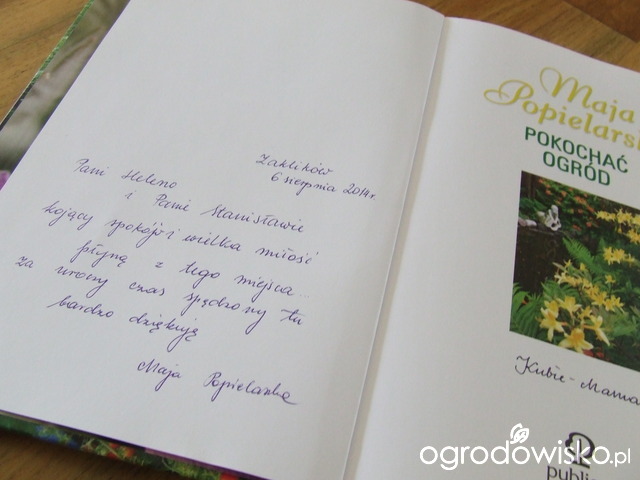 Zaklików
6 sierpnia 2014r.
Pani Heleno
i Panie Stanisławie
kojący spokój i wielka miłość
płyną z tego miejsca...
za uroczy czas spędzony tu
bardzo dziękuję
Maja Popielarska
Maja
Popielars
POKOCHAĆ
OGRÓD
Kubie - Mama
public
ogrodowisko.pl